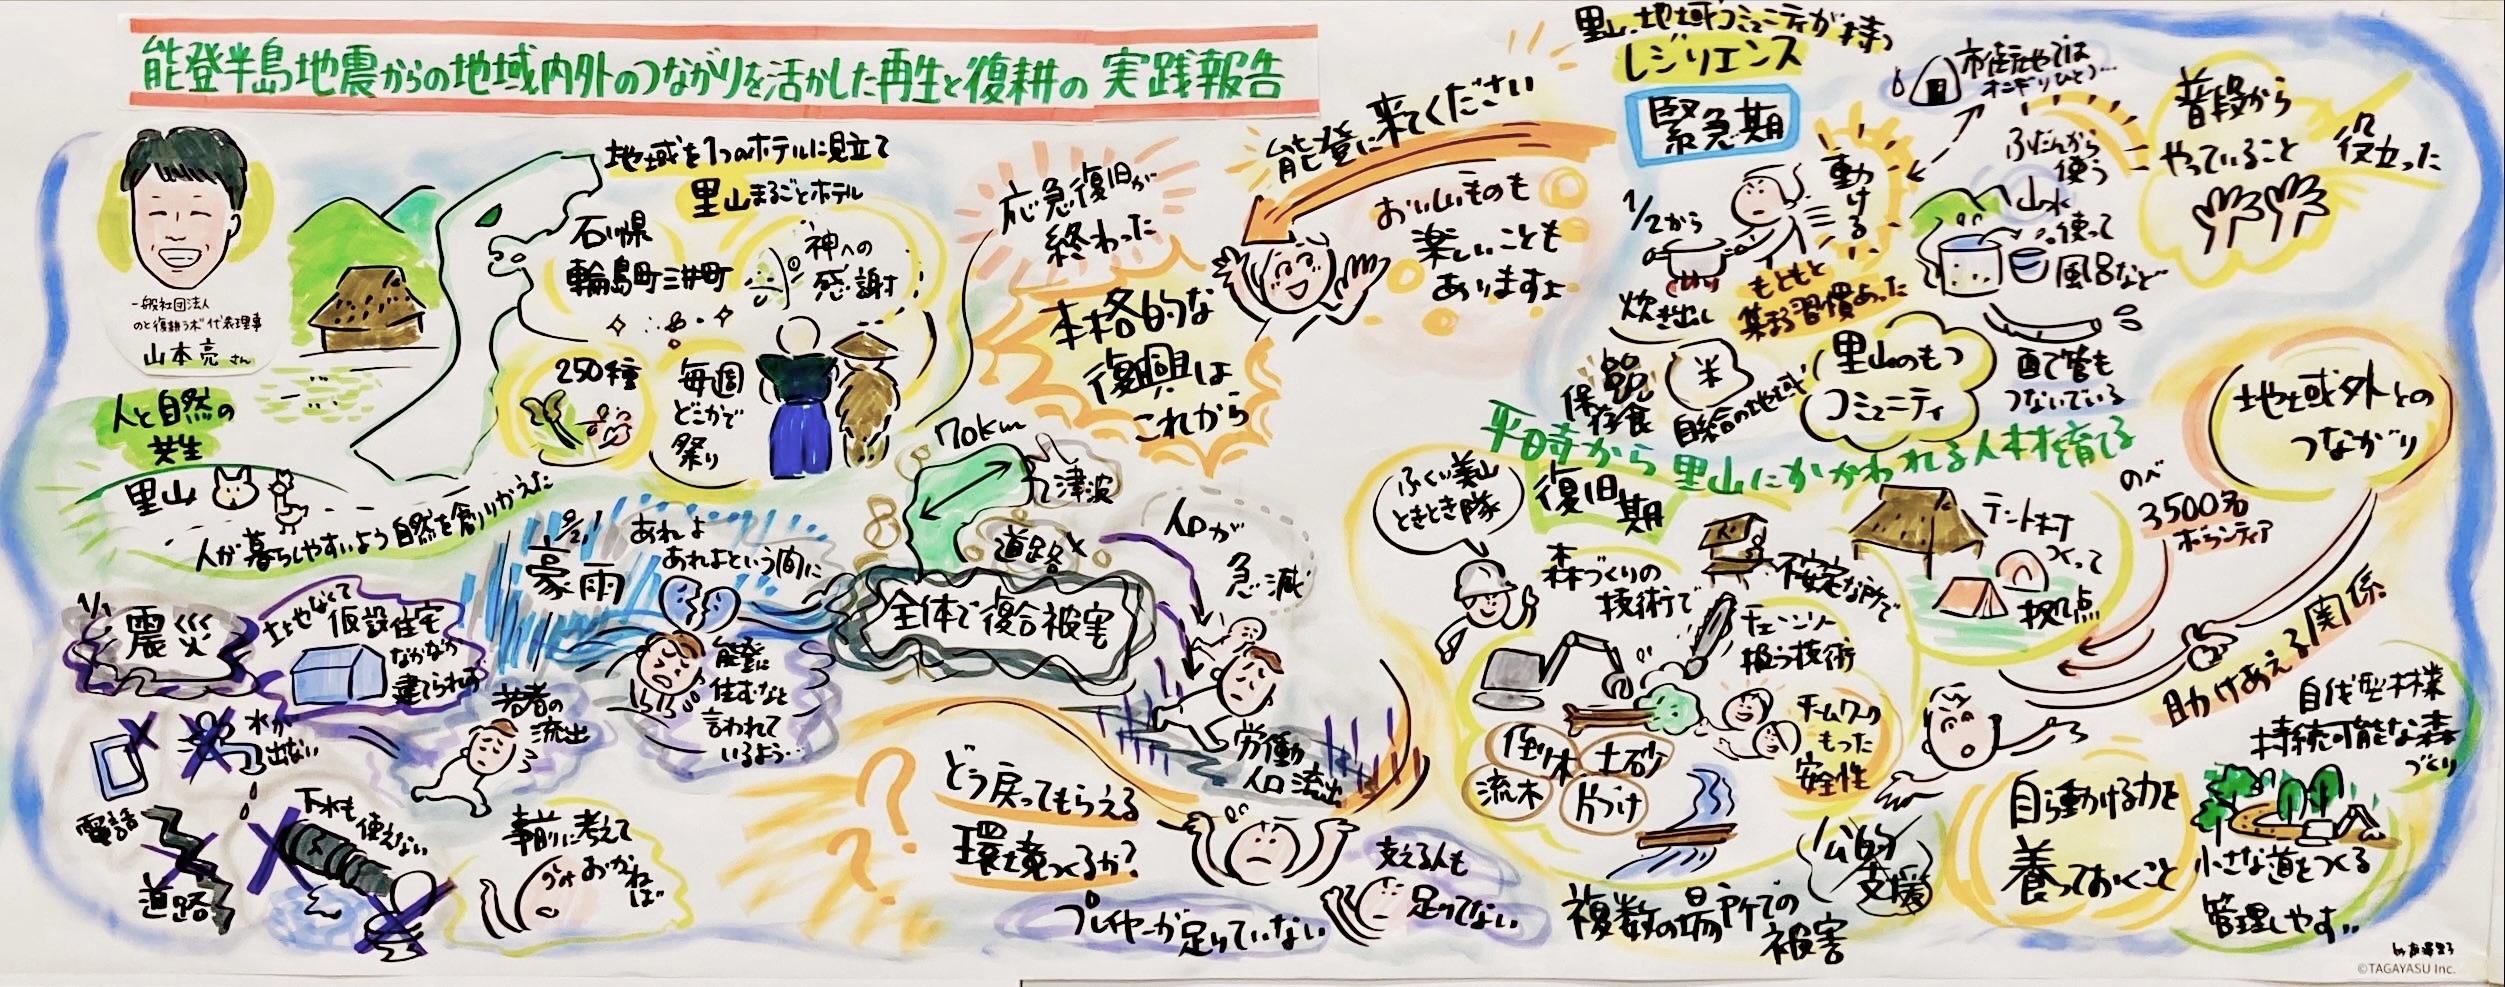 能登半島地震からの地域内外のつながりを活かした再生と復耕の 実践報告
一般社団法人
のと復耕ラボ 代表理事
山本亮さん
人と自然の
共生
里山
人が暮らしやすいよう自然を創りかえた
地域を1つのホテルに見立て
里山まるごとホテル
石川県
輪島町三井町
神への
感謝
250種
毎週
どこかで
祭り
1/1
震災
土地がなくて
仮設住宅
なかなか
建てられず
水が
出ない
電話
道路
下水も
使えない
事前に考えて
おかねば
9/21
豪雨
あれよ
あれよという間に
若者の
流出
能登に
住むなと
言われて
いるよう…
70km
津波
道路✕
全体で複合被害
人口が
急減
労働
人口流出
応急復旧が
終わった
本格的な
復興は
これから
能登に来てください
おいしいものも
楽しいことも
ありますよ
どう戻ってもらえる
環境つくるか?
プレイヤーが足りていない
支える人も
足りてない
里山、地域コミュニティが持つ
レジリエンス
緊急期
1/2から
炊き出し
動ける
もともと
集まる習慣あった
市街地では
オニギリひとつ…
ふだんから
使う
山水
使って
風呂など
普段から
やっていること
役立った
保存食
米
自給の地域
里山のもつ
コミュニティ
自分で管も
つないでいる
平時から里山にかかわれる人材育てる
地域外との
つながり
ふくい美山
ときとき隊
復旧期
森づくりの
技術で
不安定な所で
チェーンソー
扱う技術
チームワーク
もった
安全性
倒木
土砂
流木
片づけ
テント村
つくって
拠点
のべ
3500名
ボランティア
助けあえる関係
複数の場所での
被害
公的
支援
自ら動ける力を
養っておくこと
自伐型林業
持続可能な森
づくり
小さな道をつくる
管理しやすい
©TAGAYASU Inc.